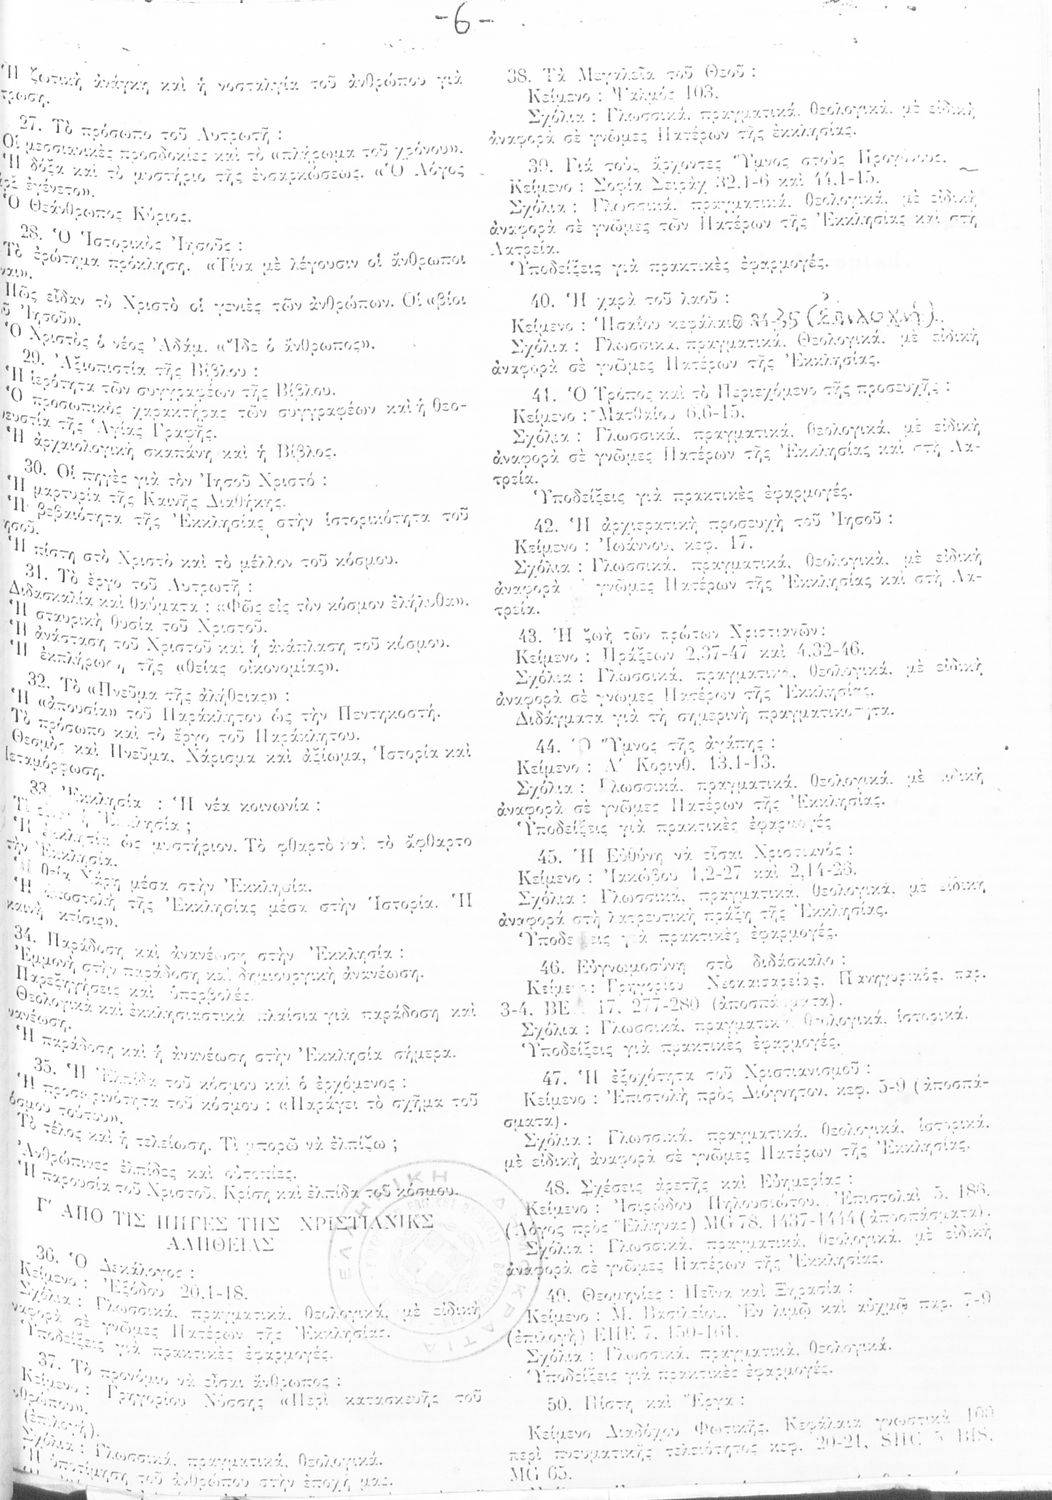 -6-
Ἡ ζωτικὴ ἀνάγκη καὶ ἡ νοσταλγία τοῦ ἀνθρώπου γιὰ
τρωση.
27. Τὸ πρόσωπο τοῦ Λυτρωτῆ :
Οἱ μεσσιανικὲς προσδοκίες καὶ τὸ «πλήρωμα τοῦ χρόνου».
Ἡ δόξα καὶ τὸ μυστήριο τῆς ἐνσαρκώσεως. «Ὁ Λόγος
ἐγένετο».
Ὁ Θεάνθρωπος Κύριος.
28. Ὁ Ἱστορικὸς Ἰησοῦς :
Τὸ ἐρώτημα πρόκληση. «Τίνα μὲ λέγουσιν οἱ ἄνθρωποι
ναι».
Πῶς εἶδαν τὸ Χριστὸ οἱ γενιὲς τῶν ἀνθρώπων. Οἱ «βίοι
Ἰησοῦ».
Ὁ Χριστὸς ὁ νέος Ἀδάμ. «Ἴδε ὁ ἄνθρωπος».
29. Ἀξιοπιστία τῆς Βίβλου :
Ἡ ἱερότητα τῶν συγγραφέων τῆς Βίβλου.
Ὁ προσωπικὸς χαρακτήρας τῶν συγγραφέων καὶ ἡ θεο-
νευστία τῆς Ἁγίας Γραφῆς.
Ἡ ἀρχαιολογικὴ σκαπάνη καὶ ἡ Βίβλος.
30. Οἱ πηγὲς γιὰ τὸν Ἰησοῦ Χριστό :
Ἡ μαρτυρία τῆς Καινῆς Διαθήκης.
Ἡ βεβαιότητα τῆς Ἐκκλησίας στὴν ἱστορικότητα τοῦ
ησοῦ.
Ἡ πίστη στὸ Χριστὸ καὶ τὸ μέλλον τοῦ κόσμου.
31. Τὸ ἔργο τοῦ Λυτρωτῆ :
Διδασκαλία καὶ θαύματα : «Φῶς εἰς τὸν κόσμον ἐλήλυθα».
Ἡ σταυρικὴ θυσία τοῦ Χριστοῦ.
Ἡ ἀνάσταση τοῦ Χριστοῦ καὶ ἡ ἀνάπλαση τοῦ κόσμου.
Ἡ ἐκπλήρωση τῆς «θείας οἰκονομίας».
32. Τὸ «Πνεῦμα τῆς ἀλήθειας» :
Ἡ «ἀπουσία» τοῦ Παράκλητου ὡς τὴν Πεντηκοστή.
Τὸ πρόσωπο καὶ τὸ ἔργο τοῦ Παράκλητου.
Θεσμὸς καὶ Πνεῦμα, Χάρισμα καὶ ἀξίωμα, Ἱστορία καὶ
εταμόρφωση.
33. Ἐκκλησία : Ἡ νέα κοινωνία :
Τί ἡ Ἐκκλησία ;
Ἡ ἐκκλησία ὡς μυστήριον. Τὸ φθαρτὸ καὶ τὸ ἄφθαρτο
τὴν Ἐκκλησία.
Ἡ θεία Χάρη μέσα στὴν Ἐκκλησία.
Ἡ ἀποστολὴ τῆς Ἐκκλησίας μέσα στὴν Ἱστορία. Ἡ
καινὴ κτίσις».
34. Παράδοση καὶ ἀνανέωση στὴν Ἐκκλησία :
Ἐμμονὴ στὴν παράδοση καὶ δημιουργικὴ ἀνανέωση.
Παρεξηγήσεις καὶ ὑπερβολές.
Θεολογικὰ καὶ ἐκκλησιαστικὰ πλαίσια γιὰ παράδοση καὶ
νανέωση.
Ἡ παράδοση καὶ ἡ ἀνανέωση στὴν Ἐκκλησία σήμερα.
35. Ἡ Ἐλπίδα τοῦ κόσμου καὶ ὁ ἐρχόμενος :
Ἡ προσωρινότητα τοῦ κόσμου : «Παράγει τὸ σχῆμα τοῦ
όσμου τούτου».
Τὸ τέλος καὶ ἡ τελείωση. Τί μπορῶ νὰ ἐλπίζω ;
Ἀνθρώπινες ἐλπίδες καὶ οὐτοπίες.
Ἡ παρουσία τοῦ Χριστοῦ. Κρίση καὶ ἐλπίδα τοῦ κόσμου.
Γ΄ ΑΠΟ ΤΙΣ ΠΗΓΕΣ ΤΗΣ ΧΡΙΣΤΙΑΝΙΚΣ
ΑΛΗΘΕΙΑΣ
36. Ὁ Δεκάλογος :
Κείμενο : Ἐξόδου 20,1-18.
Σχόλια : Γλωσσικά, πραγματικά, θεολογικά, μὲ εἰδικὴ
ναφορὰ σὲ γνῶμες Πατέρων τῆς Ἐκκλησίας.
Ὑποδείξεις γιὰ πρακτικὲς ἐφαρμογές.
37. Τὸ προνόμιο νὰ εἶσαι ἄνθρωπος :
Κείμενο : Γρηγορίου Νύσσης «Περὶ κατασκευῆς τοῦ
νθρώπου».
(ἐπιλογή).
Σχόλια : Γλωσσικά, πραγματικά, θεολογικά.
Ἡ ὑποτίμηση τοῦ ἀνθρώπου στὴν ἐποχή μας.
38. Τὰ Μεγαλεῖα τοῦ Θεοῦ :
Κείμενο : Ψαλμὸς 103.
Σχόλια : Γλωσσικά, πραγματικά, θεολογικά, μὲ εἰδικὴ
ἀναφορὰ σὲ γνῶμες Πατέρων τῆς ἐκκλησίας.
39. Γιὰ τοὺς ἄρχοντες Ὕμνος στοὺς Προγόνους.
Κείμενο : Σοφία Σειρὰχ 32,1-6 καὶ 44,1-15.
Σχόλια : Γλωσσικά, πραγματικά, θεολογικά, μὲ εἰδικὴ
ἀναφορὰ σὲ γνῶμες τῶν Πατέρων τῆς Ἐκκλησίας καὶ στὴ
Λατρεία.
Ὑποδείξεις γιὰ πρακτικὲς ἐφαρμογές.
40. Ἡ χαρὰ τοῦ λαοῦ :
Κείμενο : Ἡσαΐου κεφάλαιο 34-35 (ἐπιλογή).
Σχόλια : Γλωσσικά, πραγματικά, Θεολογικά, μὲ εἰδικὴ
ἀναφορὰ σὲ γνῶμες Πατέρων τῆς Ἐκκλησίας.
41. Ὁ Τρόπος καὶ τὸ Περιεχόμενο τῆς προσευχῆς :
Κείμενο : Ματθαίου 6,6-15.
Σχόλια : Γλωσσικά, πραγματικά, θεολογικά, μὲ εἰδικὴ
ἀναφορὰ σὲ γνῶμες Πατέρων τῆς Ἐκκλησίας καὶ στὴ Λα-
τρεία.
Ὑποδείξεις γιὰ πρακτικὲς ἐφαρμογές.
42. Ἡ ἀρχιερατικὴ προσευχὴ τοῦ Ἰησοῦ :
Κείμενο : Ἰωάννου, κεφ. 17.
Σχόλια : Γλωσσικά, πραγματικά, θεολογικά, μὲ εἰδικὴ
ἀναφορὰ γνῶμες Πατέρων τῆς Ἐκκλησίας καὶ στὴ Λα-
τρεία.
43. Ἡ ζωὴ τῶν πρώτων Χριστιανῶν:
Κείμενο : Πράξεων 2,37-47 καὶ 4,32-46.
Σχόλια : Γλωσσικά, πραγματικά, θεολογικά, μὲ εἰδικὴ
ἀναφορὰ σὲ γνῶμες Πατέρων τῆς Ἐκκλησίας.
Διδάγματα γιὰ τὴ σημερινὴ πραγματικότητα.
44. Ὁ Ὕμνος τῆς ἀγάπης :
Κείμενο : Α΄ Κορινθ. 13,1-13.
Σχόλια : Γλωσσικά, πραγματικά, θεολογικά, μὲ εἰδικὴ
ἀναφορὰ σὲ γνῶμες Πατέρων τῆς Ἐκκλησίας.
Ὑποδείξεις γιὰ πρακτικὲς ἐφαρμογές
45. Ἡ Εὐθύνη νὰ εἶσαι Χριστιανός :
Κείμενο : Ἰακώβου 1,2-27 καὶ 2,14-26.
Σχόλια : Γλωσσικά, πραγματικά, θεολογικά, μὲ εἰδικὴ
ἀναφορὰ στὴ λατρευτικὴ πράξη τῆς Ἐκκλησίας.
Ὑποδείξεις γιὰ πρακτικὲς ἐφαρμογές.
46. Εὐγνωμοσύνη στὸ διδάσκαλο :
Κείμενο : Γρηγορίου Νεοκαισαρείας, Πανηγυρικός, παρ.
3-4, ΒΕΠ 17, 277-280 (ἀποσπάσματα).
Σχόλια : Γλωσσικά, πραγματικά, θεολογικά, ἱστορικά.
Ὑποδείξεις γιὰ πρακτικὲς ἐφαρμογές.
47. Ἡ ἐξοχότητα τοῦ Χριστιανισμοῦ :
Κείμενο : Ἐπιστολὴ πρὸς Διόγνητον, κεφ. 5-9 (ἀποσπά-
σματα).
Σχόλια : Γλωσσικά, πραγματικά, θεολογικά, ἱστορικά,
μὲ εἰδικὴ ἀναφορὰ σὲ γνῶμες Πατέρων τῆς Ἐκκλησίας.
48. Σχέσεις ἀρετῆς καὶ Εὐημερίας :
Κείμενο : Ἰσιδώρου Πηλουσιώτου, Ἐπιστολαὶ 5, 186,
(Λόγος πρὸς Ἕλληνας) MG 78, 1437-1444 (ἀποσπάσματα).
Σχόλια : Γλωσσικά, πραγματικά, θεολογικά, μὲ εἰδικὴ
ἀναφορὰ σὲ γνῶμες Πατέρων τῆς Ἐκκλησίας.
49. Θεομηνίες : Πεῖνα καὶ Ξηρασία :
Κείμενο : Μ. Βασιλείου, Ἐν λιμῷ καὶ αὐχμῷ παρ. 7-9
(ἐπιλογή) ΕΠΕ 7, 150-161.
Σχόλια : Γλωσσικά, πραγματικά, θεολογικά.
Ὑποδείξεις γιὰ πρακτικὲς ἐφαρμογές.
50. Πίστη καὶ Ἔργα :
Κείμενο Διαδόχου Φωτικῆς, Κεφάλαια γνωστικὰ 100
περὶ πνευματικῆς τελειότητος κεφ. 20-21, SHC 5 BIS,
MG 65.
ΕΛΛΗΝΙΚΗ ΔΗΜΟΚΡΑΤΙΑ